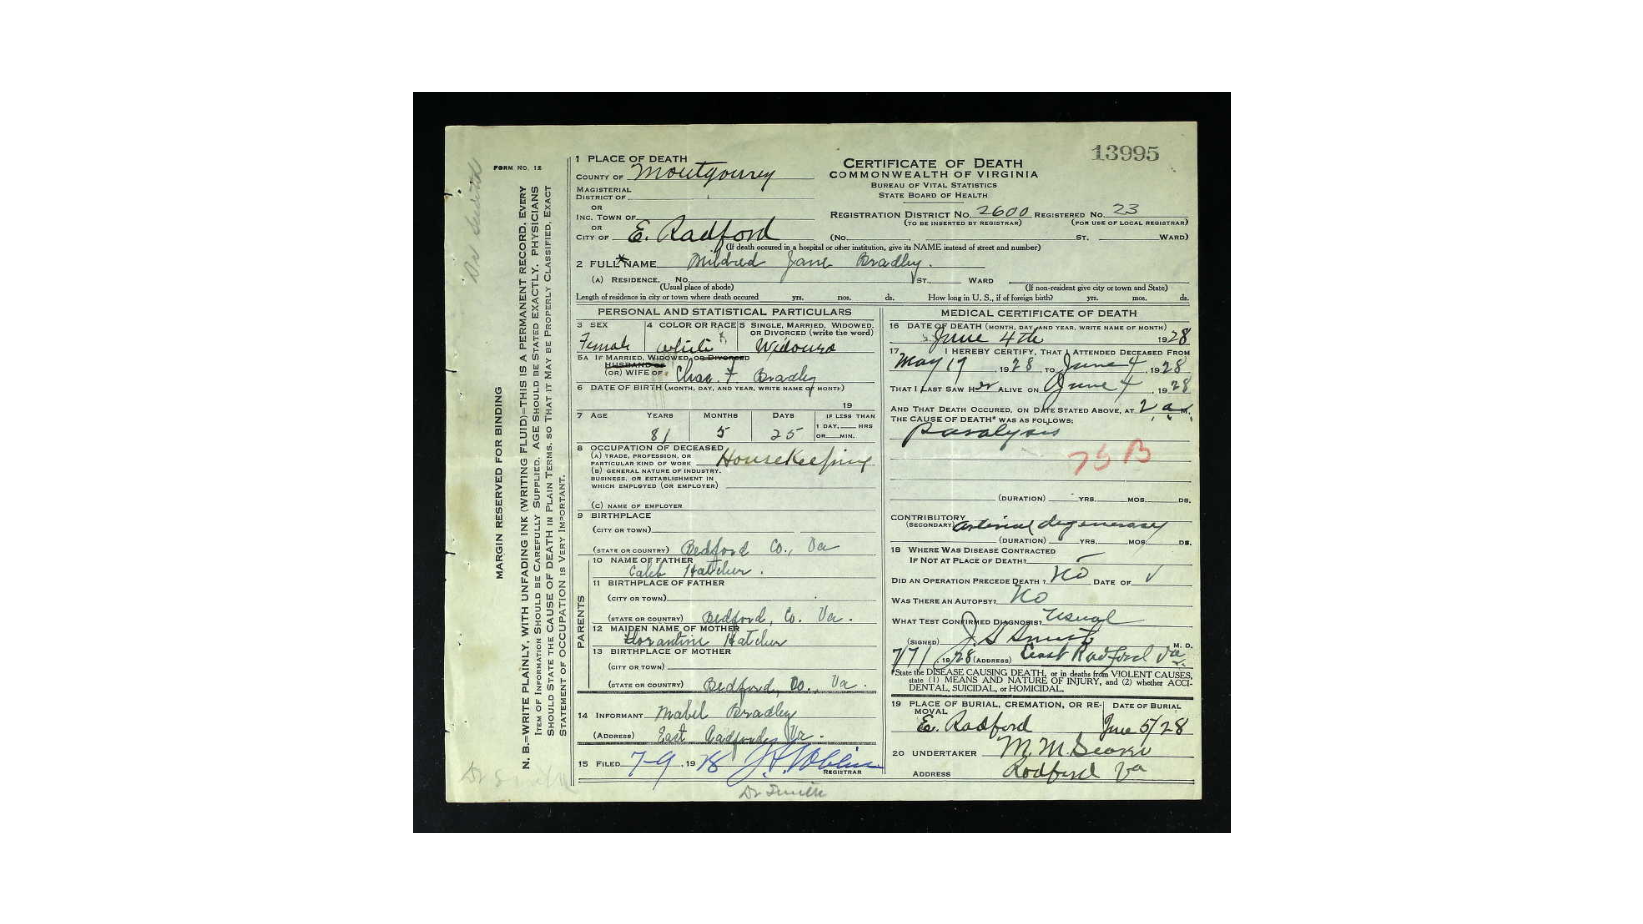 13995
FORM NO. 12
MARGIN RESERVED FOR BINDING
N. B.—WRITE PLAINLY, WITH UNFADING INK (WRITING FLUID)—THIS IS A PERMANENT RECORD, EVERY
ITEM OF INFORMATION SHOULD BE CAREFULLY SUPPLIED. AGE SHOULD BE STATED EXACTLY. PHYSICIANS
SHOULD STATE THE CAUSE OF DEATH IN PLAIN TERMS, SO THAT IT MAY BE PROPERLY CLASSIFIED. EXACT
STATEMENT OF OCCUPATION IS VERY IMPORTANT.
1 PLACE OF DEATH
COUNTY OF Montgomery
MAGISTERIAL
DISTRICT OF
OR
INC. TOWN OF
OR
CITY OF E. Radford
CERTIFICATE OF DEATH
COMMONWEALTH OF VIRGINIA
BUREAU OF VITAL STATISTICS
STATE BOARD OF HEALTH
REGISTRATION DISTRICT NO. 2600 REGISTERED NO. 23
(TO BE INSERTED BY REGISTRAR) (FOR USE OF LOCAL REGISTRAR)
(NO. ST. WARD)
(If death occured in a hospital or other institution, give its NAME instead of street and number)
2 FULL NAME Mildred Jane Bradley.
(A) RESIDENCE. NO. ST. WARD
(Usual place of abode) (If non-resident give city or town and State)
Length of residence in city or town where death occured yrs. mos. ds. How long in U. S., if of foreign birth? yrs. mos. ds.
PERSONAL AND STATISTICAL PARTICULARS
3 SEX 4 COLOR OR RACE 5 SINGLE, MARRIED, WIDOWED,
OR DIVORCED (write the word)
Female white Widowed
5A IF MARRIED, WIDOWED, OR DIVORCED
HUSBAND OF
(OR) WIFE OF Chas. F Bradley
6 DATE OF BIRTH (MONTH, DAY, AND YEAR, WRITE NAME OF MONTH)
19
7 AGE YEARS MONTHS DAYS IF LESS THAN
1 DAY, HRS
OR MIN.
81 5 25
8 OCCUPATION OF DECEASED
(A) TRADE, PROFESSION, OR
PARTICULAR KIND OF WORK Housekeeping
(B) GENERAL NATURE OF INDUSTRY,
BUSINESS, OR ESTABLISHMENT IN
WHICH EMPLOYED (OR EMPLOYER)
(C) NAME OF EMPLOYER
9 BIRTHPLACE
(CITY OR TOWN)
(STATE OR COUNTRY) Bedford Co., Va
PARENTS
10 NAME OF FATHER
Caleb Hatcher.
11 BIRTHPLACE OF FATHER
(CITY OR TOWN)
(STATE OR COUNTRY) Bedford, Co. Va.
12 MAIDEN NAME OF MOTHER
Florantine Hatcher
13 BIRTHPLACE OF MOTHER
(CITY OR TOWN)
(STATE OR COUNTRY) Bedford, Co., Va.
14 INFORMANT Mabel Bradley
(ADDRESS) East Radford, Va.
15 FILED 7-9, 19
REGISTRAR
MEDICAL CERTIFICATE OF DEATH
16 DATE OF DEATH (MONTH, DAY, AND YEAR, WRITE NAME OF MONTH)
June 4th 1928
17 I HEREBY CERTIFY, THAT I ATTENDED DECEASED FROM
May 17, 1928 TO June 4, 1928
THAT I LAST SAW her ALIVE ON June 4 1928
AND THAT DEATH OCCURED, ON DATE STATED ABOVE, AT 2 a M.
THE CAUSE OF DEATH* WAS AS FOLLOWS:
Paralysis
75 B
(DURATION) YRS. MOS. DS.
CONTRIBUTORY
(SECONDARY) arterial degeneracy
(DURATION) YRS. MOS. DS.
18 WHERE WAS DISEASE CONTRACTED
IF NOT AT PLACE OF DEATH?
DID AN OPERATION PRECEDE DEATH? No DATE OF
WAS THERE AN AUTOPSY? No
WHAT TEST CONFIRMED DIAGNOSIS? Usual
(SIGNED) M. D.
1928 (ADDRESS) East Radford Va.
*State the DISEASE CAUSING DEATH, or in deaths from VIOLENT CAUSES,
state (1) MEANS AND NATURE OF INJURY, and (2) whether ACCI-
DENTAL, SUICIDAL, or HOMICIDAL.
19 PLACE OF BURIAL, CREMATION, OR RE-
MOVAL DATE OF BURIAL
E. Radford June 5/28
20 UNDERTAKER M. M.
ADDRESS Radford Va
Dr Smith